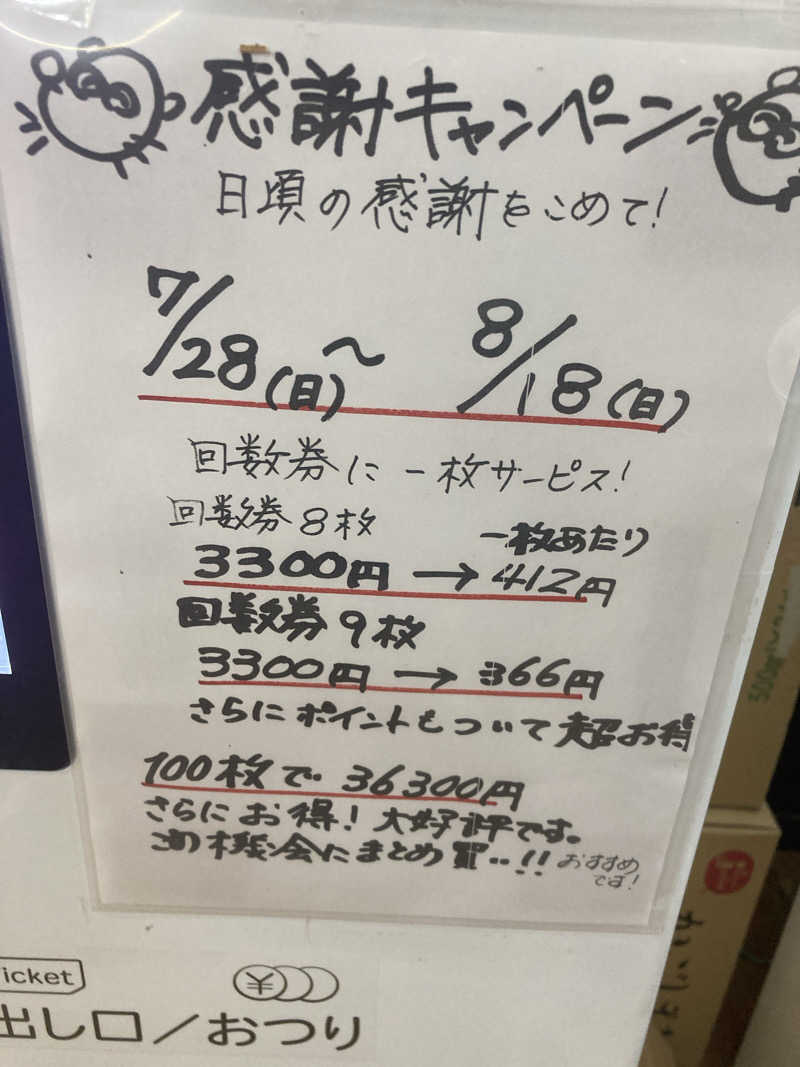 感謝キャンペーン
日頃の感謝をこめて!
7/28(日)~ 8/18(日)
回数券に一枚サービス!
回数券8枚
一枚あたり
3300円→412円
回数券9枚
3300円→366円
さらにポイントもついて超お得
100枚で 36300円
さらにお得!大好評です。
機会にまとめ買‥!!
おすすめ
です!
icket
出し口/おつり